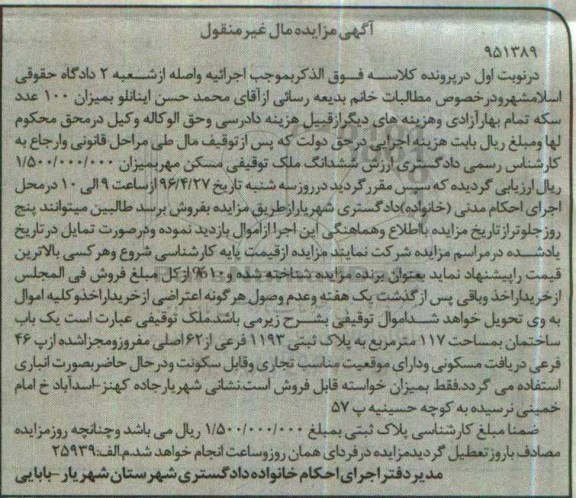 آگهی مزایده مال غیر منقول
۹۵۱۳۸۹
در نوبت اول در پرونده کلاسه فوق الذکر بموجب اجرائیه واصله از شعبه ۲ دادگاه حقوقی
اسلامشهر و در خصوص مطالبات خانم بدیعه رسائی از آقای محمد حسن اینانلو بمیزان ۱۰۰ عدد
سکه تمام بهار آزادی و هزینه های دیگر از قبیل هزینه دادرسی و حق الوکاله وکیل در محق محکوم
لها و مبلغ ریال بابت هزینه اجرایی در حق دولت که پس از توقیف مال طی مراحل قانونی و ارجاع به
کارشناس رسمی دادگستری ارزش ششدانگ ملک توقیفی مسکن مهر بمیزان ۱/۵۰۰/۰۰۰/۰۰۰
ریال ارزیابی گردیده که سپس مقرر گردید در روز سه شنبه تاریخ ۹۶/۴/۲۷ از ساعت ۹ الی ۱۰ در محل
اجرای احکام مدنی (خانواده) دادگستری شهریار از طریق مزایده بفروش برسد طالبین میتوانند پنج
روز جلوتر از تاریخ مزایده با اطلاع و هماهنگی این اجرا از اموال بازدید نموده و در صورت تمایل در تاریخ
یاد شده در مراسم مزایده شرکت نمایند مزایده از قیمت پایه کارشناسی شروع و هر کسی بالاترین
قیمت را پیشنهاد نماید بعنوان برنده مزایده شناخته شده و ۱۰% از کل مبلغ فروش فی المجلس
از خریدار اخذ و باقی پس از گذشت یک هفته و عدم وصول هر گونه اعتراضی از خریدار اخذ و کلیه اموال
به وی تحویل خواهد شد اموال توقیفی بشرح زیر می باشد ملک توقیفی عبارت است یک باب
ساختمان بمساحت ۱۱۷ متر مربع به پلاک ثبتی ۱۱۹۳ فرعی از ۶۲ اصلی مفروز و مجزا شده از پ ۴۶
فرعی دریافت مسکونی و دارای موقعیت مناسب تجاری و قابل سکونت و در حال حاضر بصورت انباری
استفاده می گردد. فقط بمیزان خواسته قابل فروش است. نشانی شهریار جاده کهنز-اسدآباد خ امام
خمینی نرسیده به کوچه حسینیه پ ۵۷
ضمنا مبلغ کارشناسی پلاک ثبتی بمبلغ ۱/۵۰۰/۰۰۰/۰۰۰ ریال می باشد و چنانچه روز مزایده
مصادف با روز تعطیل گردید مزایده در فردای همان روز و ساعت انجام خواهد شد. م.الف: ۲۵۹۳۹
مدیر دفتر اجرای احکام خانواده دادگستری شهرستان شهریار - بابایی